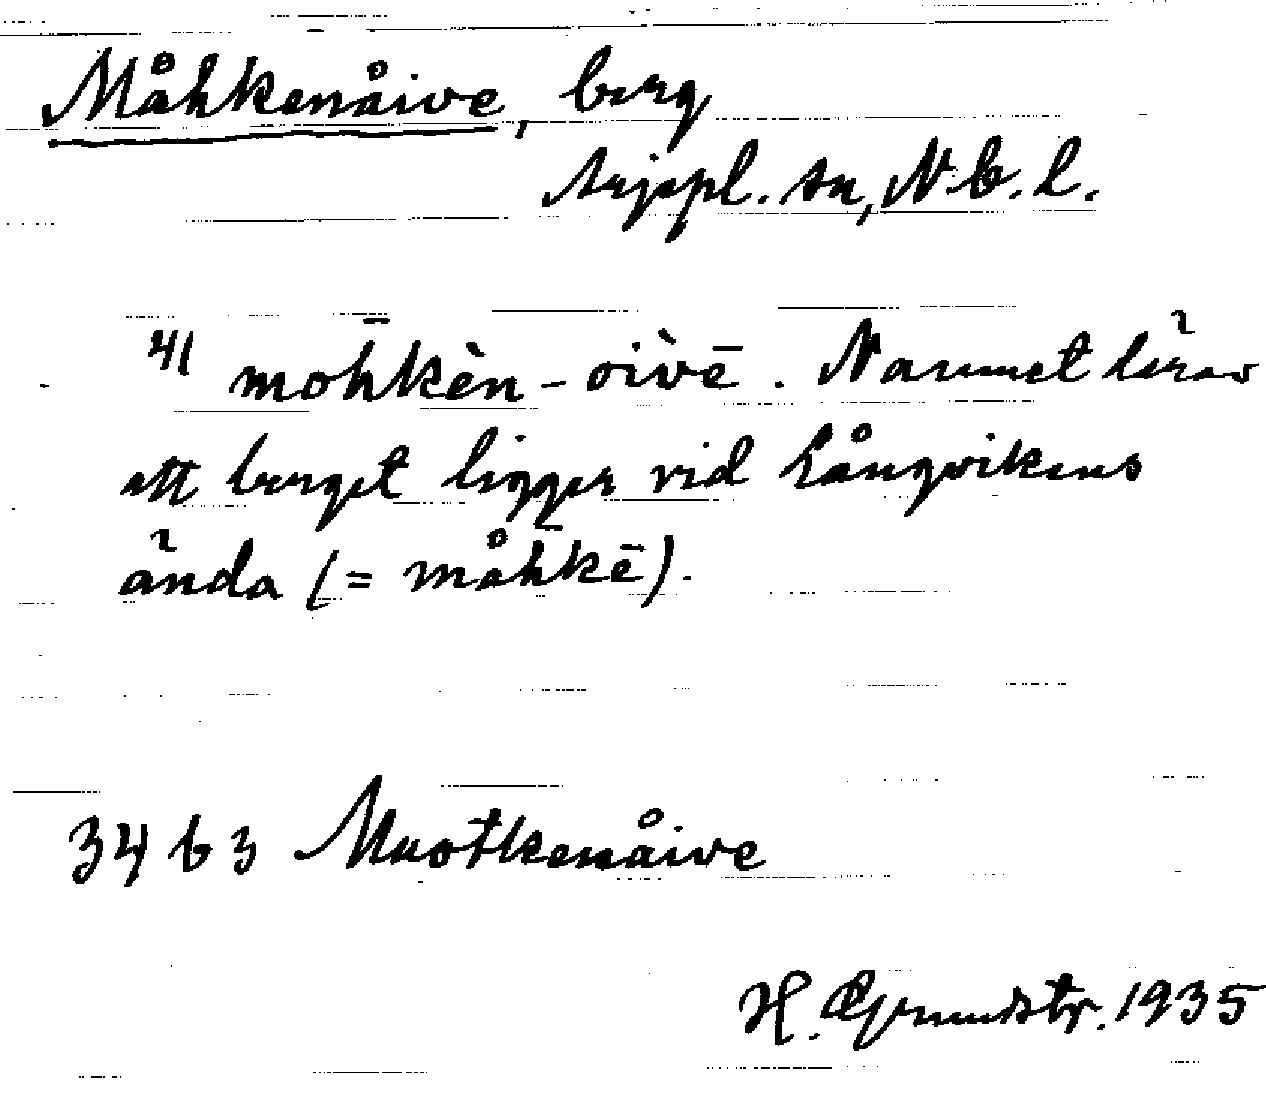 Måhkenåive, berg
Arjepl. sn, N.b.l.
41 moh̄kèn-oìvē. Namnet därav
att berget ligger vid Långvikens
ända (= måh̄kē).
3463 Muotkenåive
H. Grundstr. 1935